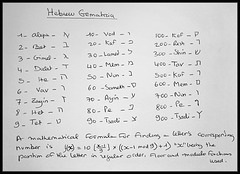 Hebrew Gematria
1 - Aleph - א 10 - Yod - י 100 - Kof - ק
2 - Bet - ב 20 - Kof - כ 200 - Resh - ר
3 - Gimel - ג 30 - Lamed - ל 300 - Shin - ש
4 - Dalet - ד 40 - Mem - מ 400 - Tav - ת
5 - He - ה 50 - Nun - נ 500 - Kof -
6 - Vav - ו 60 - Samekh - ס 600 - Mem -
7 - Zayin - ז 70 - Ayin - ע 700 - Nun -
8 - Het - ח 80 - Pe - פ 800 - Pe -
9 - Tet - ט 90 - Tsadi - 900 - Tsadi -
A mathematical formula for finding a letter's corresponding
number is x ((x-1 mod 9) + 1) "x" being the
position of the letter in regular order. Floor and modulo functions
used.